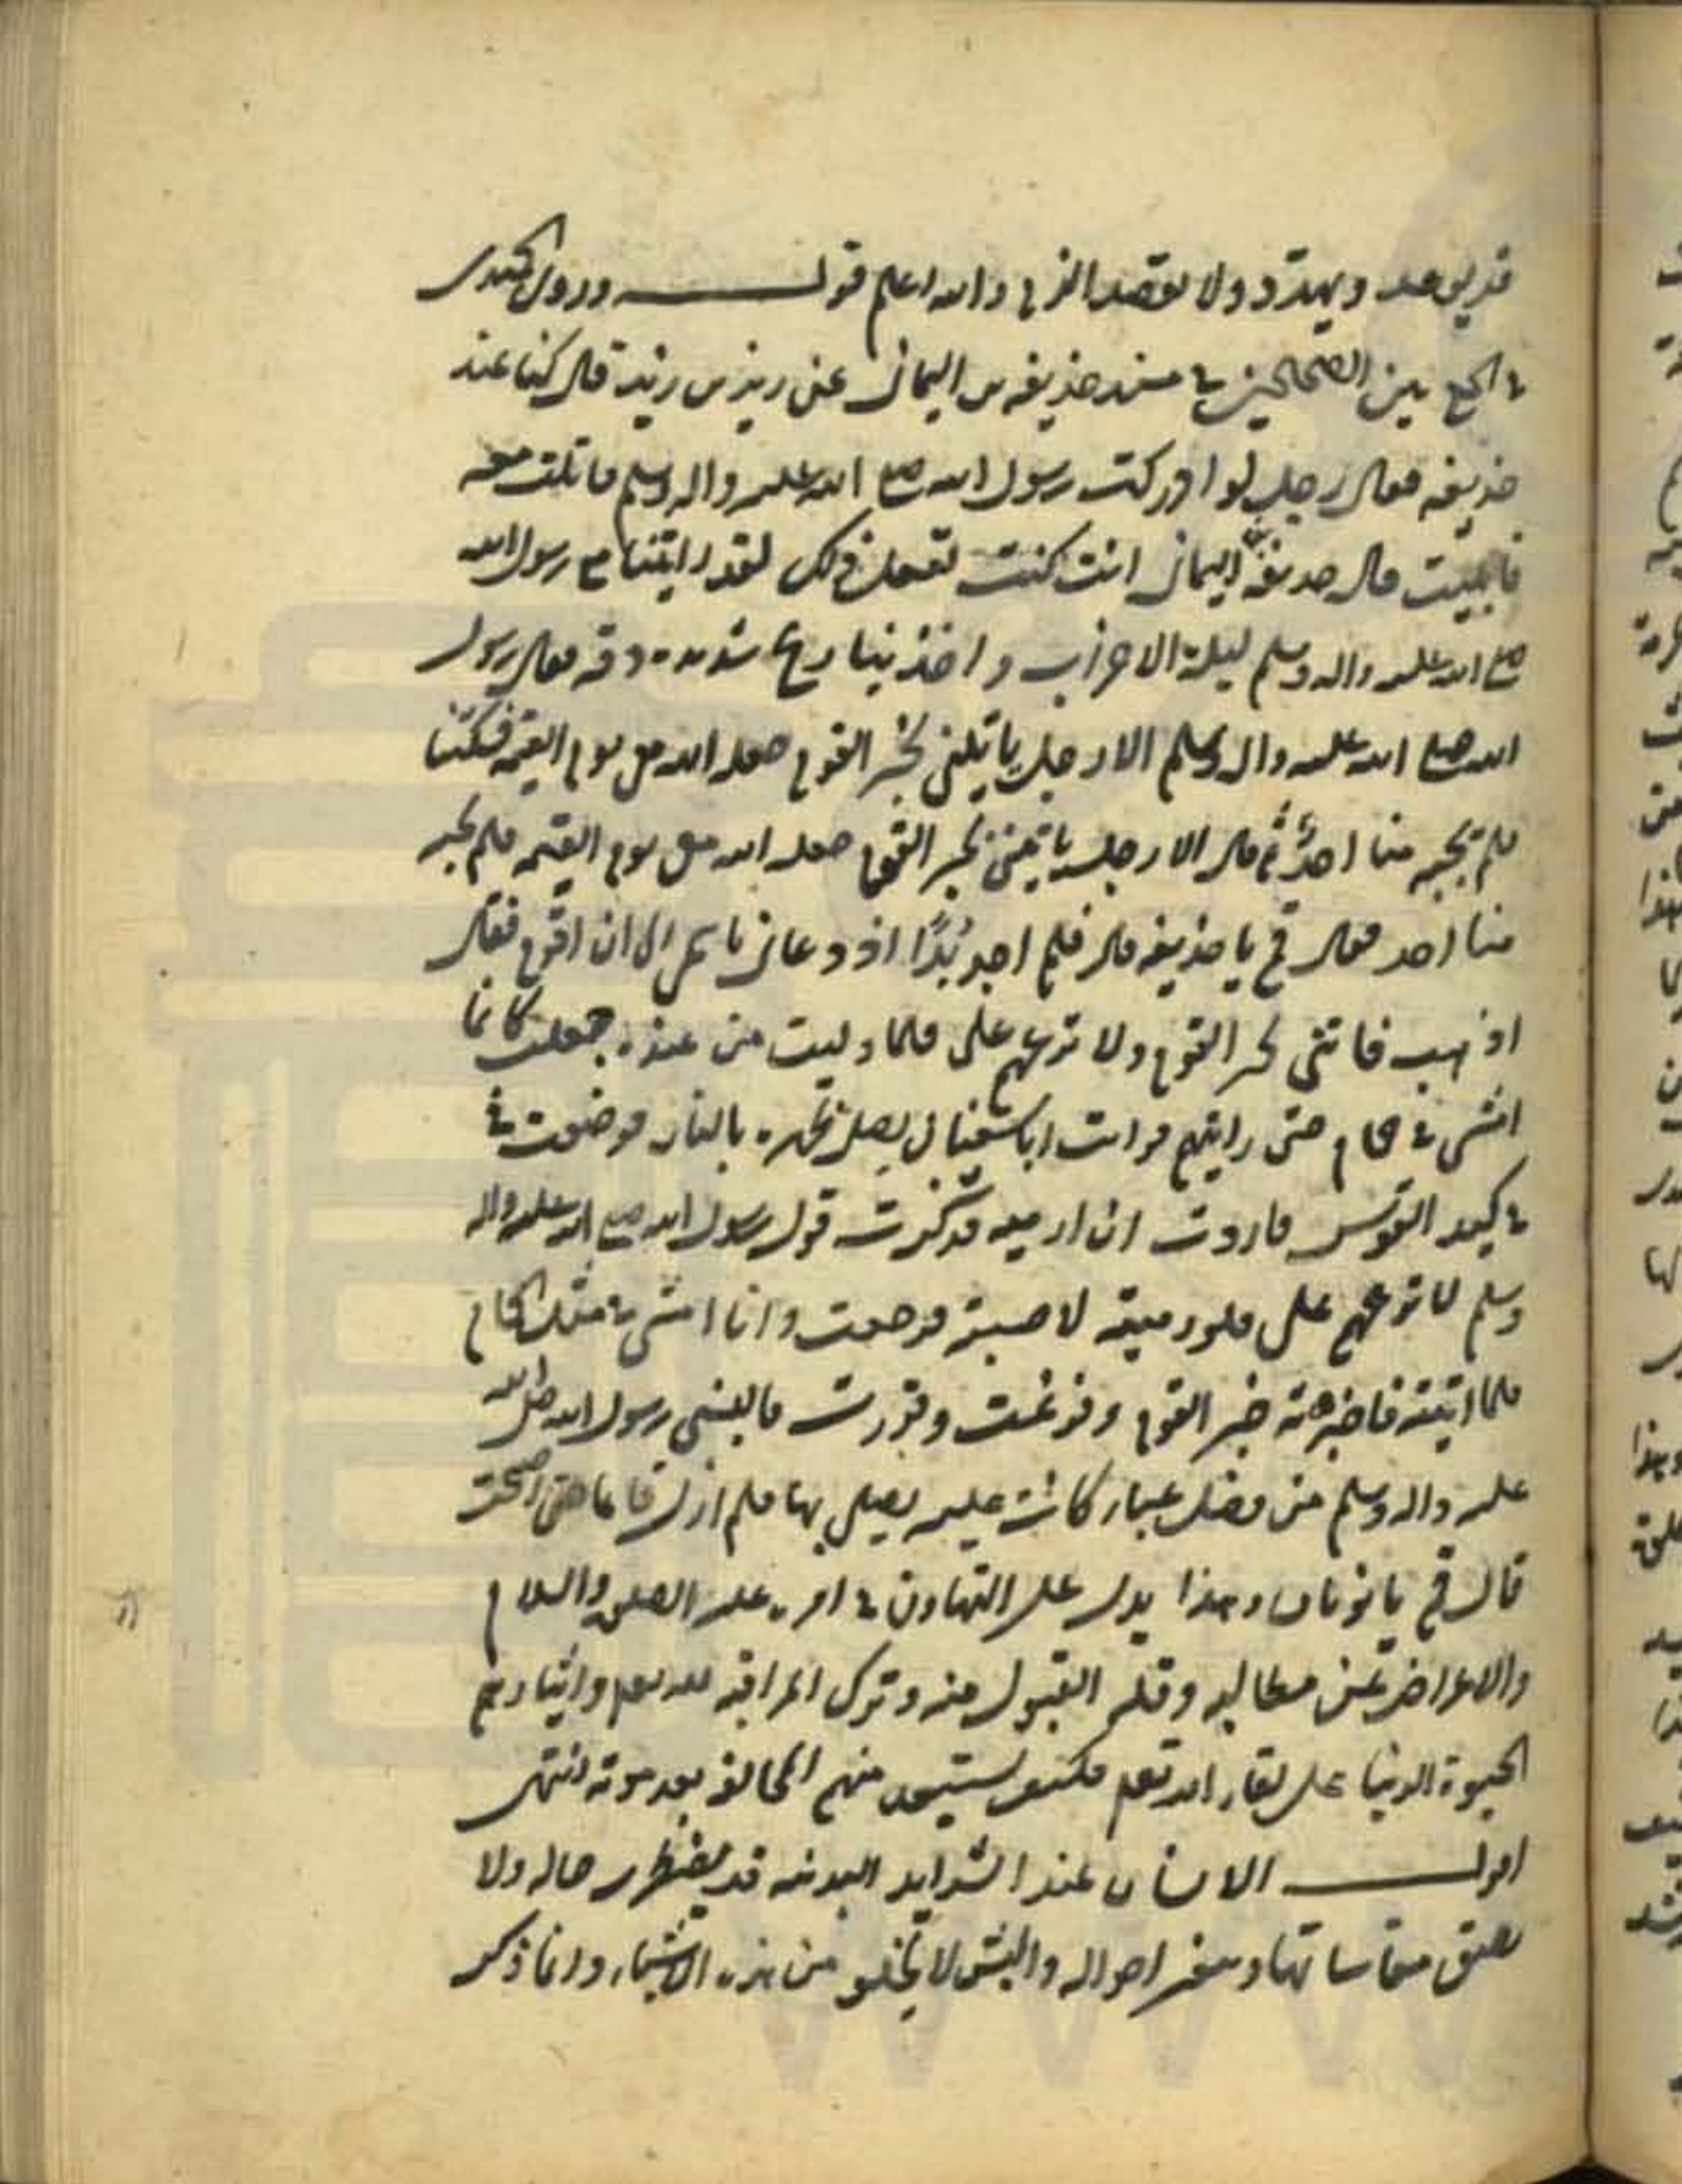 قد يوعد ويهدد ولا يقصد الذم والله اعلم قوله وروى الحميدى
في الجمع بين الصحيحين في مسند حذيفة بن اليمان عن زيد بن زيد قال كنا عند
حذيفة فقال رجل لو ادركت رسول الله صلى الله عليه واله وسلم قاتلت معه
فابليت قال حذيفة بن اليمان انت كنت تفعل ذلك لقد رايتنا مع رسول الله
صلى الله عليه واله وسلم ليلة الاحزاب واخذتنا ريح شديدة وقر فقال رسول
الله صلى الله عليه واله وسلم الا رجل ياتيني بخبر القوم جعله الله معي يوم القيمة فسكتنا
فلم يجبه منا احد ثم قال الا رجل ياتيني بخبر القوم جعله الله معي يوم القيمة فلم يجبه
منا احد فقال قم يا حذيفة قال فلم اجد بُدًّا اذ دعاني باسمى الا ان اقوم فقال
اذهب فاتنى بخبر القوم ولا تذعرهم على فلما وليت من عنده جعلت كانما
امشى في حمام حتى رايتهم فرايت اباسفيان يصلى ظهره بالنار فوضعت
في كبد القوس فاردت ان ارميه فذكرت قول رسول الله صلى الله عليه واله
وسلم لا تذعرهم على فلو رميته لاصبته فرجعت وانا امشى في مثل الحمام
فلما اتيته فاخبرته خبر القوم وفرغت وقررت فالبسنى رسول الله صلى الله
عليه واله وسلم من فضل عباء كانت عليه يصلى بها فلم ازل نائما حتى اصبحت
قال قم يا نومان وهذا يدل على التهاون في امره عليه الصلوة والسلام
والاعراض عن مطالبه وقلة القبول منه وترك المراقبة لله تعالى وايثارهم
الحيوة الدنيا على لقاء الله تعالى فكيف يستبعد منهم المخالفة بعد موته انتهى
اقول الانسان عند الشدايد البدنية قد يضطرب حاله ولا
يطيق مقاساتها وتتغير احواله والبشر لا يخلو من هذه الاشياء وانما ذكر